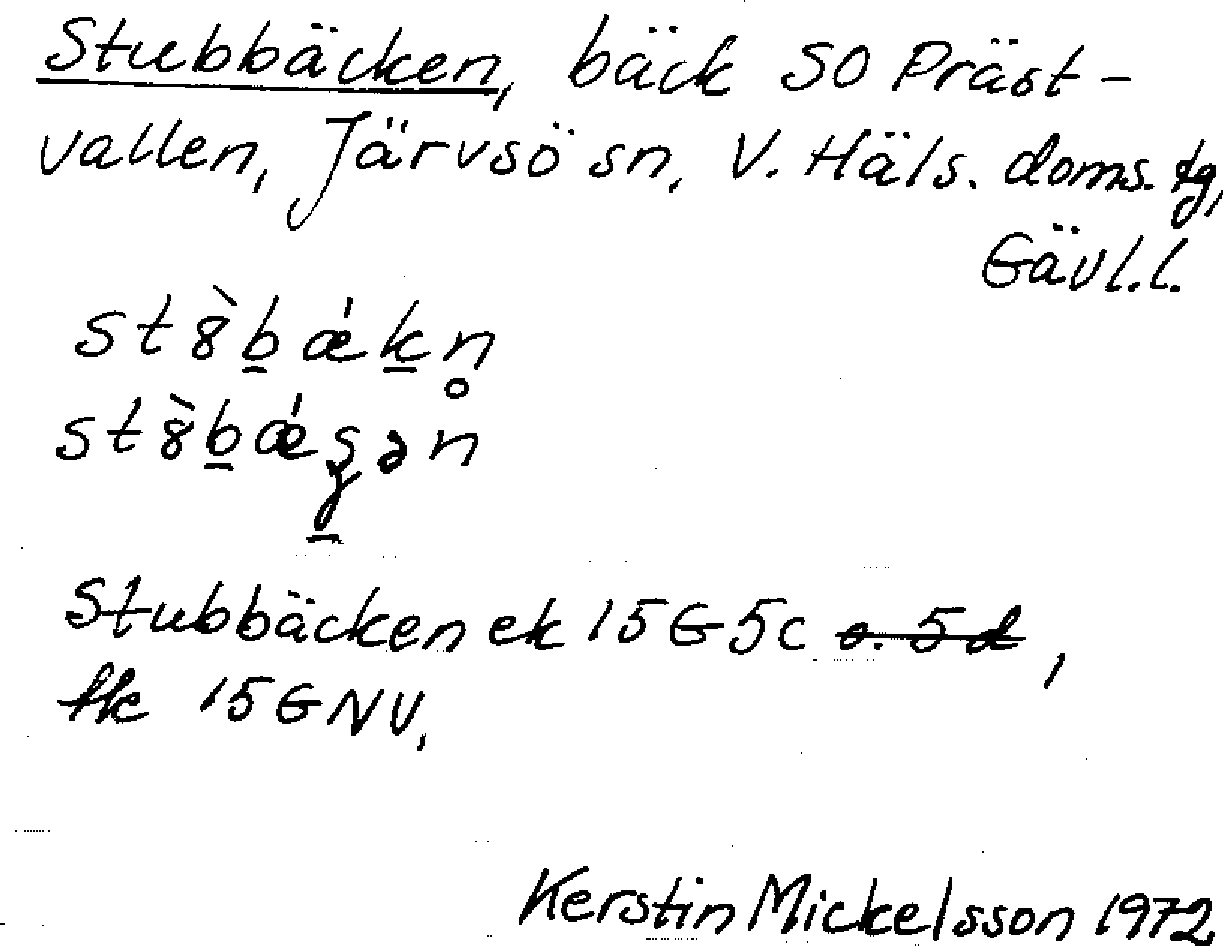 Stubbäcken, bäck SO Präst-
vallen, Järvsö sn, V. Häls. doms. tg,
Gävl.l.
st8̀b̲ǽk̲n̥
st8̀b̲ǽ ən
Stubbäcken ek 15G5c o. 5d,
tk 15GNV,
Kerstin Mickelsson 1972